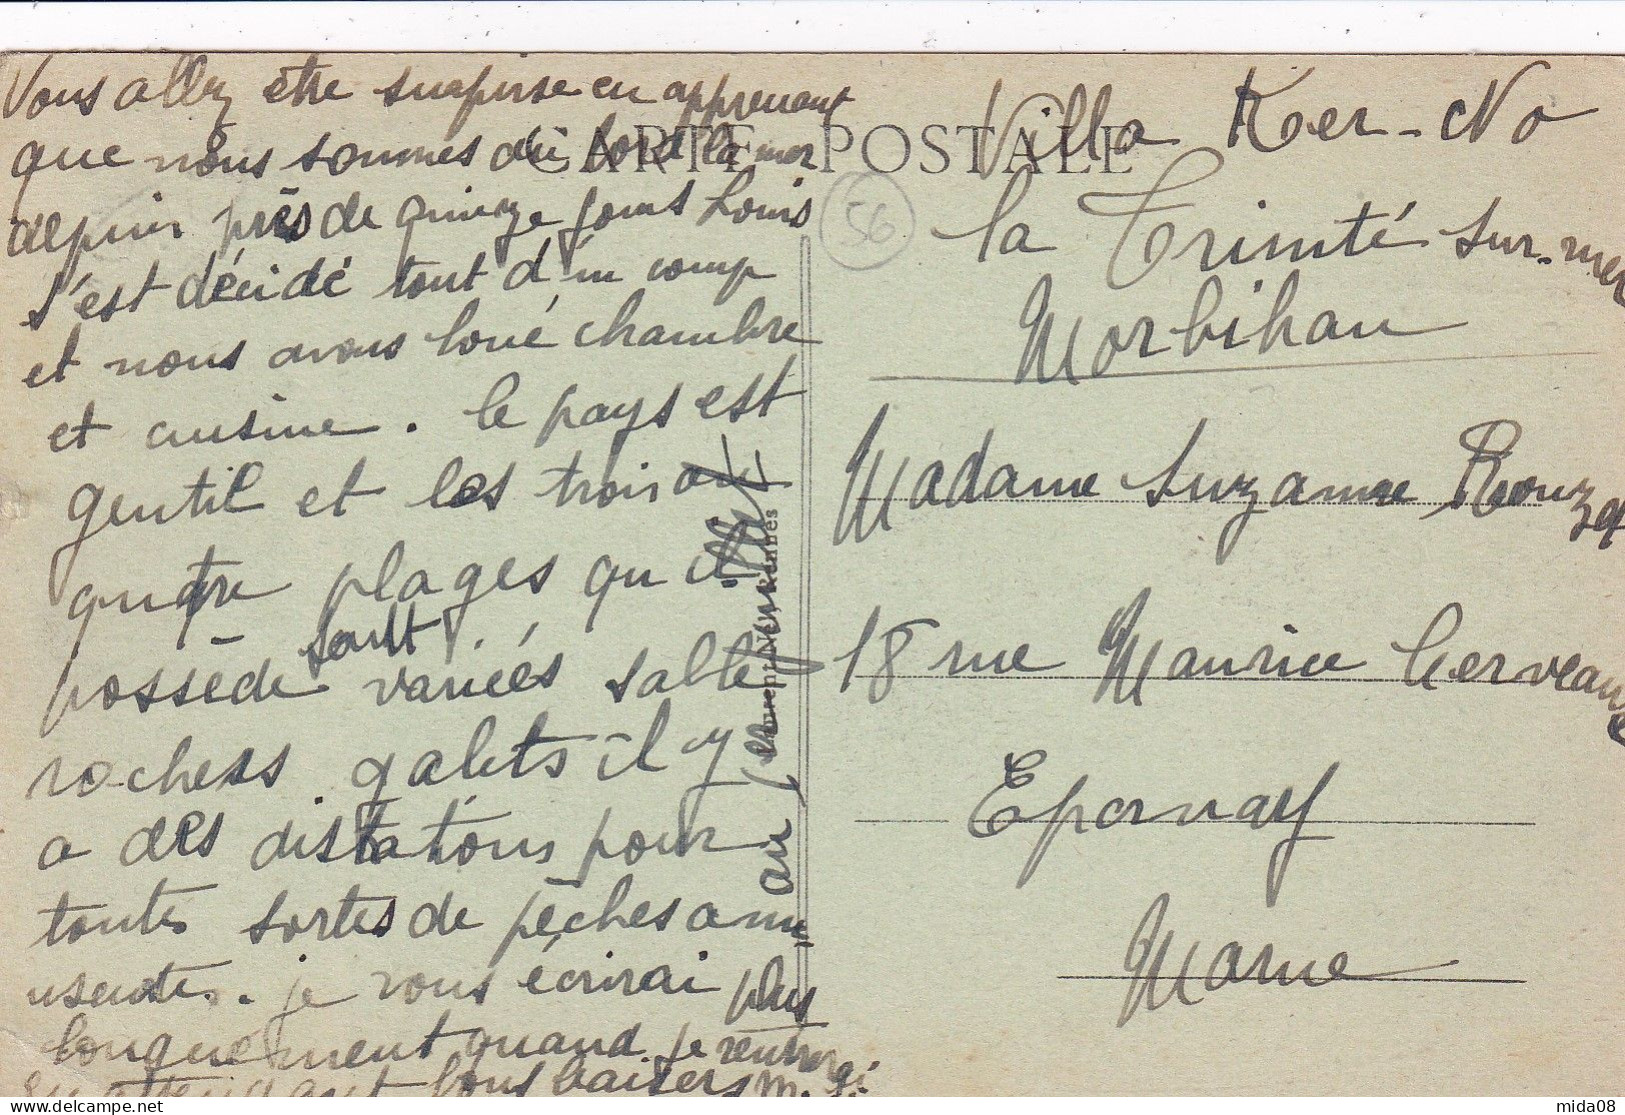 Vous allez être surpirse en apprenant
que nous sommes au bord la mer
depuis près de quinze jours Louis
s'est décidé tout d'un coup
et nous avons loué chambre
et cuisine. le pays est
gentil et les trois ou
quatre plages qu'il
possède sont variées sable
rochess galets il y
a des distations pour
toutes sortes de pêches amu
usantes. je vous écrirai plus
longuement quand je rentrerai
En attendant bons baisers M. L.
CARTE POSTALE
56
Villa Ker-No
la Trinité sur-mer
Morbihan
Madame Suzanne Rouzé
18 rue Maurice Cerveaux
Epernay
Marne
mida08